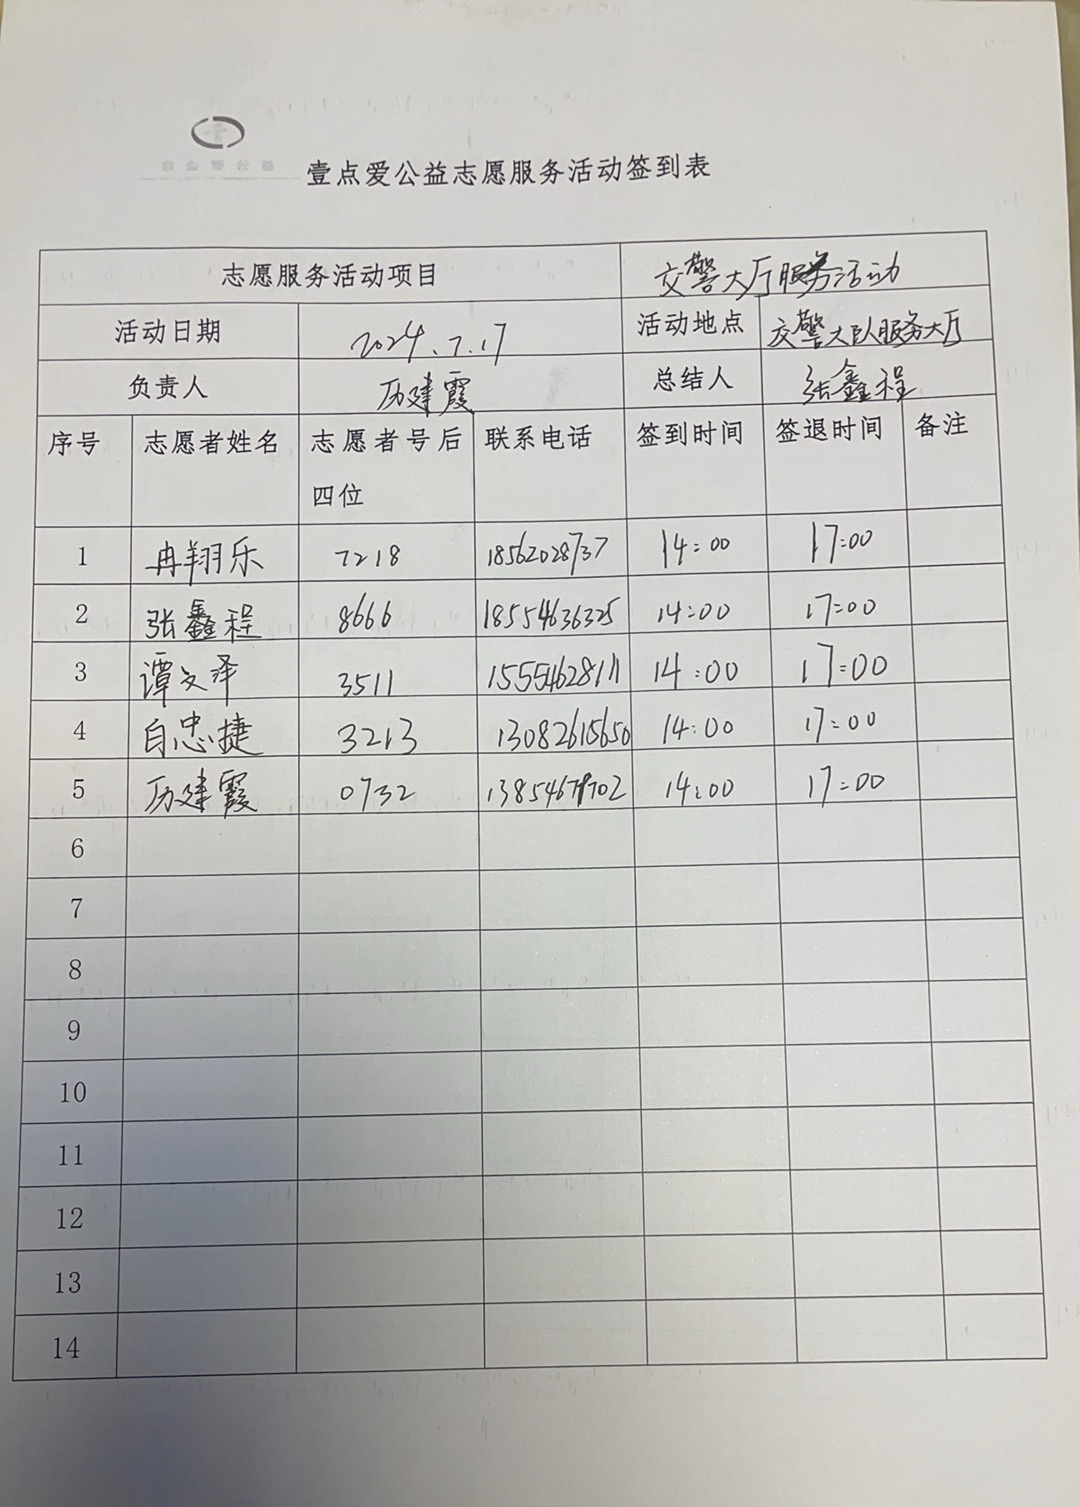 壹点爱公益志愿服务活动签到表
志愿服务活动项目 交警大厅服务活动
活动日期 2024.7.17 活动地点 交警大队服务大厅
负责人 历建霞 总结人 张鑫程
序号 志愿者姓名 志愿者号后四位 联系电话 签到时间 签退时间 备注
1 冉翔乐 7218 18562028737 14:00 17:00
2 张鑫程 8666 18554636325 14:00 17:00
3 谭文泽 3511 15554628111 14:00 17:00
4 白忠捷 3213 13082615650 14:00 17:00
5 历建霞 0732 14:00 17:00
6
7
8
9
10
11
12
13
14